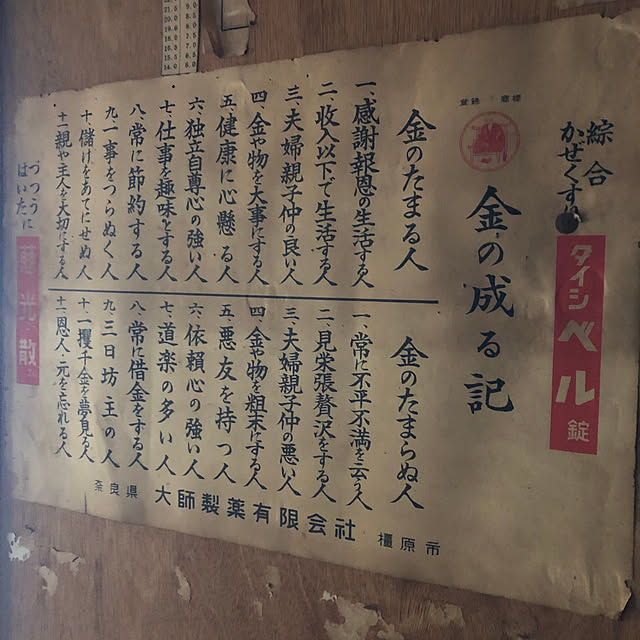 綜合
かぜくすり
タイシベル錠
登録 商標
金の成る記
金のたまる人
一、感謝報恩の生活する人
二、収入以下で生活する人
三、夫婦親子仲の良い人
四、金や物を大事にする人
五、健康に心懸る人
六、独立自尊心の強い人
七、仕事を趣味とする人
八、常に節約する人
九、一事をつらぬく人
十、儲けをあてにせぬ人
十一、親や主人を大切にする人
金のたまらぬ人
一、常に不平不満を云う人
二、見栄張贅沢をする人
三、夫婦親子仲の悪い人
四、金や物を粗末にする人
五、悪友を持つ人
六、依頼心の強い人
七、道楽の多い人
八、常に借金をする人
九、三日坊主の人
十、一攫千金を夢見る人
十一、恩人・元を忘れる人
づつうに
はいたに
光散
奈良県 大師製薬有限会社 橿原市